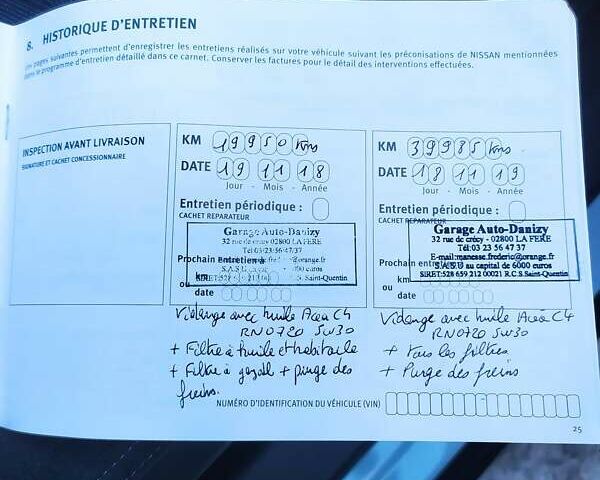 8. HISTORIQUE D'ENTRETIEN
pages suivantes permettent d'enregistrer les entretiens réalisés sur votre véhicule suivant les préconisations de NISSAN mentionnées
dans le programme d'entretien détaillé dans ce carnet. Conserver les factures pour le détail des interventions effectuées.
INSPECTION AVANT LIVRAISON
SIGNATURE ET CACHET CONCESSIONNAIRE
KM 19950 Kms
DATE 19 11 18
Jour - Mois - Année
Entretien périodique :
CACHET REPARATEUR
Garage Auto-Danizy
32 rue de crécy 02800 LA FERE
Tél:03 23 56 47 37
Prochain entretien à
ou
km
date
Vidange avec huile Acea C4
RN0720 5W30
+ Filtre à huile et habitacle
+ Filtre à gazoil + purge des
freins.
KM 39985 Kms
DATE 18 11 19
Jour - Mois - Année
Entretien périodique :
CACHET REPARATEUR
Garage Auto-Danizy
32 rue de crécy - 02800 LA FERE
Tél:03 23 56 47 37
E-mail:manesse.frederic@orange.fr
S.A.S.U au capital de 6000 euros
SIRET:528 659 212 00021 R.C.S.Saint-Quentin
Prochain
ou
km
date
Vidange avec huile Acea C4
RN0720 5W30
+ Tous les filtres
+ Purge des freins
NUMÉRO D'IDENTIFICATION DU VÉHICULE (VIN)
25